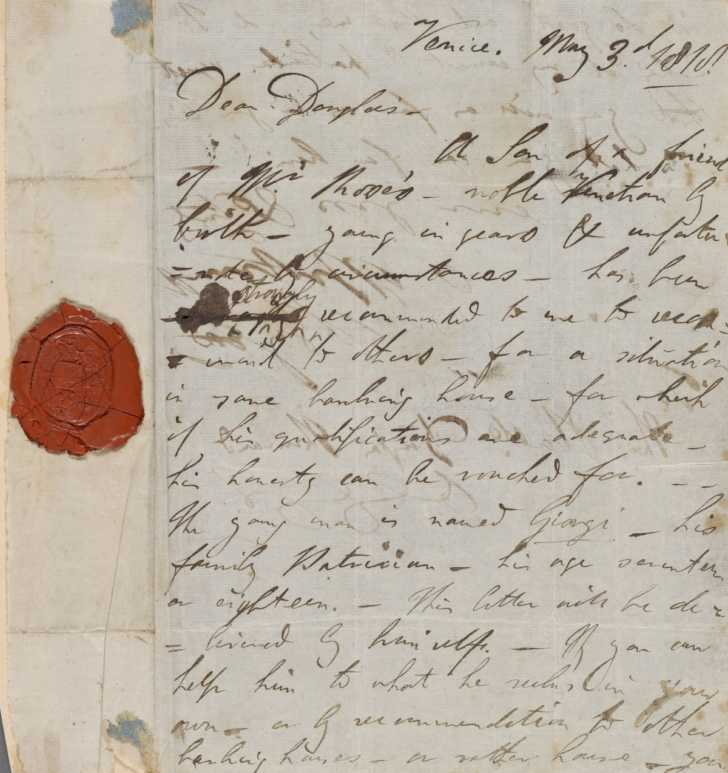 Venice. May 3.d 1818.
Dear Douglas –
A Son of a friend
of Mr Rose's – noble Venetian by
birth – young in years & unfortu
=nate by circumstances – has been
strongly
recommended to me to recom
=mend to others – for a situation
in some banking house – for which
if his qualifications are adequate –
his honesty can be vouched for. – –
The young man is named Giorgi – his
family Patrician – his age seventeen
or eighteen. – This letter will be de
=livered by himself. – If you can
help him to what he seeks in your
own – or by recommendation to other
banking houses – or rather house – you